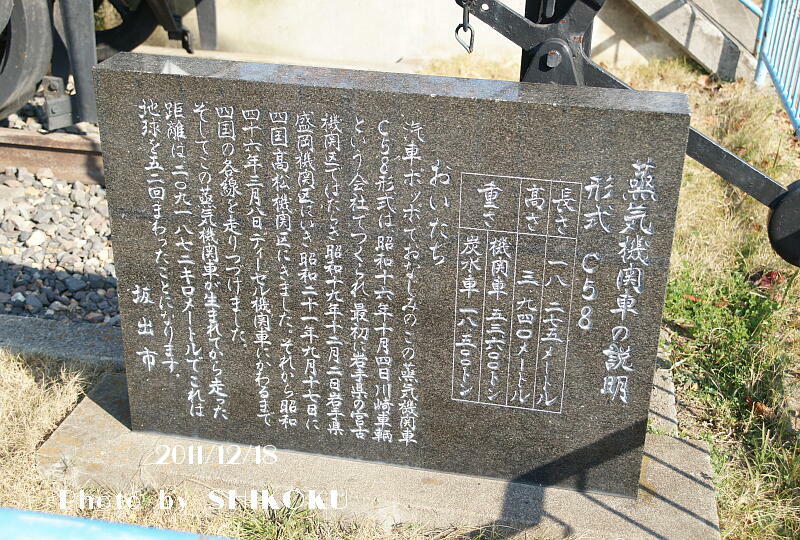 蒸気機関車の説明
形式 C58
長さ 一八、二七五メートル
高さ 三、九四〇メートル
重さ 機関車 五三、六〇〇トン
炭水車 一八、五〇〇トン
おいたち
汽車ポッポでおなじみのこの蒸気機関車
C58形式は、昭和十六年十月四日川崎車輌
という会社でつくられ、最初に岩手県の宮古
機関区ではたらき、昭和十九年十二月二日岩手県
盛岡機関区にいき、昭和二十一年九月十七日に
四国高松機関区にきました。それから昭和
四十六年三月八日ディーゼル機関車にかわるまで
四国の各線を走りつづけました。
そしてこの蒸気機関車が生まれてから走った
距離は二〇九一八七二キロメートルでこれは
地球を五二回まわったことになります。
坂出市
2011/12/18
Photo by SHIKOKU